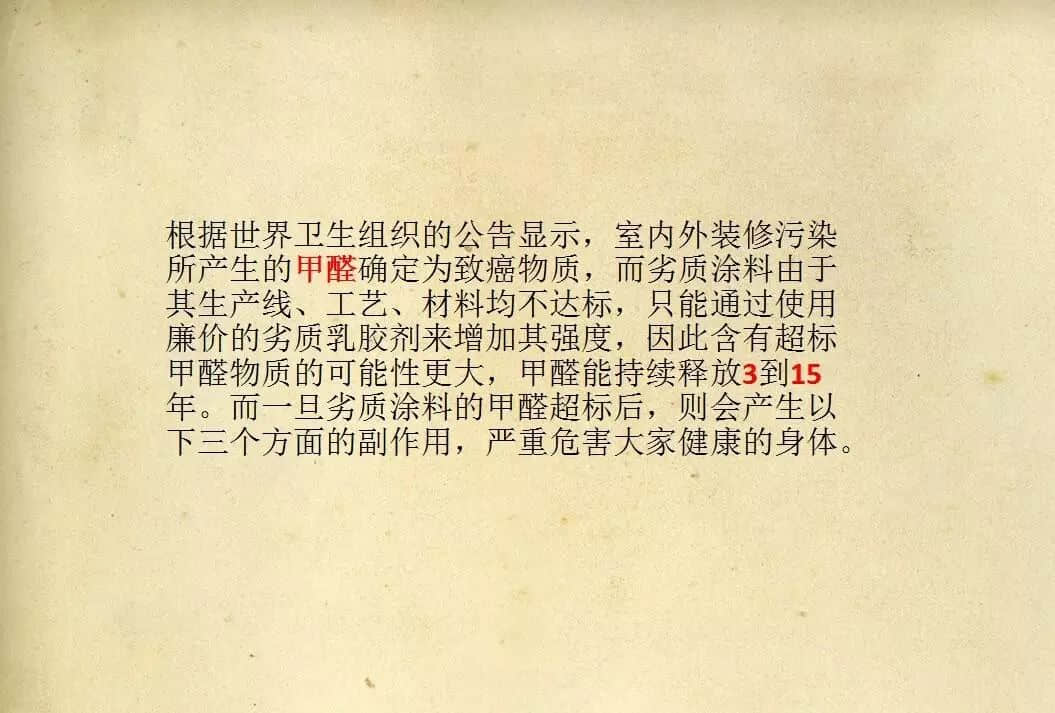 根据世界卫生组织的公告显示，室内外装修污染
所产生的甲醛确定为致癌物质，而劣质涂料由于
其生产线、工艺、材料均不达标，只能通过使用
廉价的劣质乳胶剂来增加其强度，因此含有超标
甲醛物质的可能性更大，甲醛能持续释放3到15
年。而一旦劣质涂料的甲醛超标后，则会产生以
下三个方面的副作用，严重危害大家健康的身体。